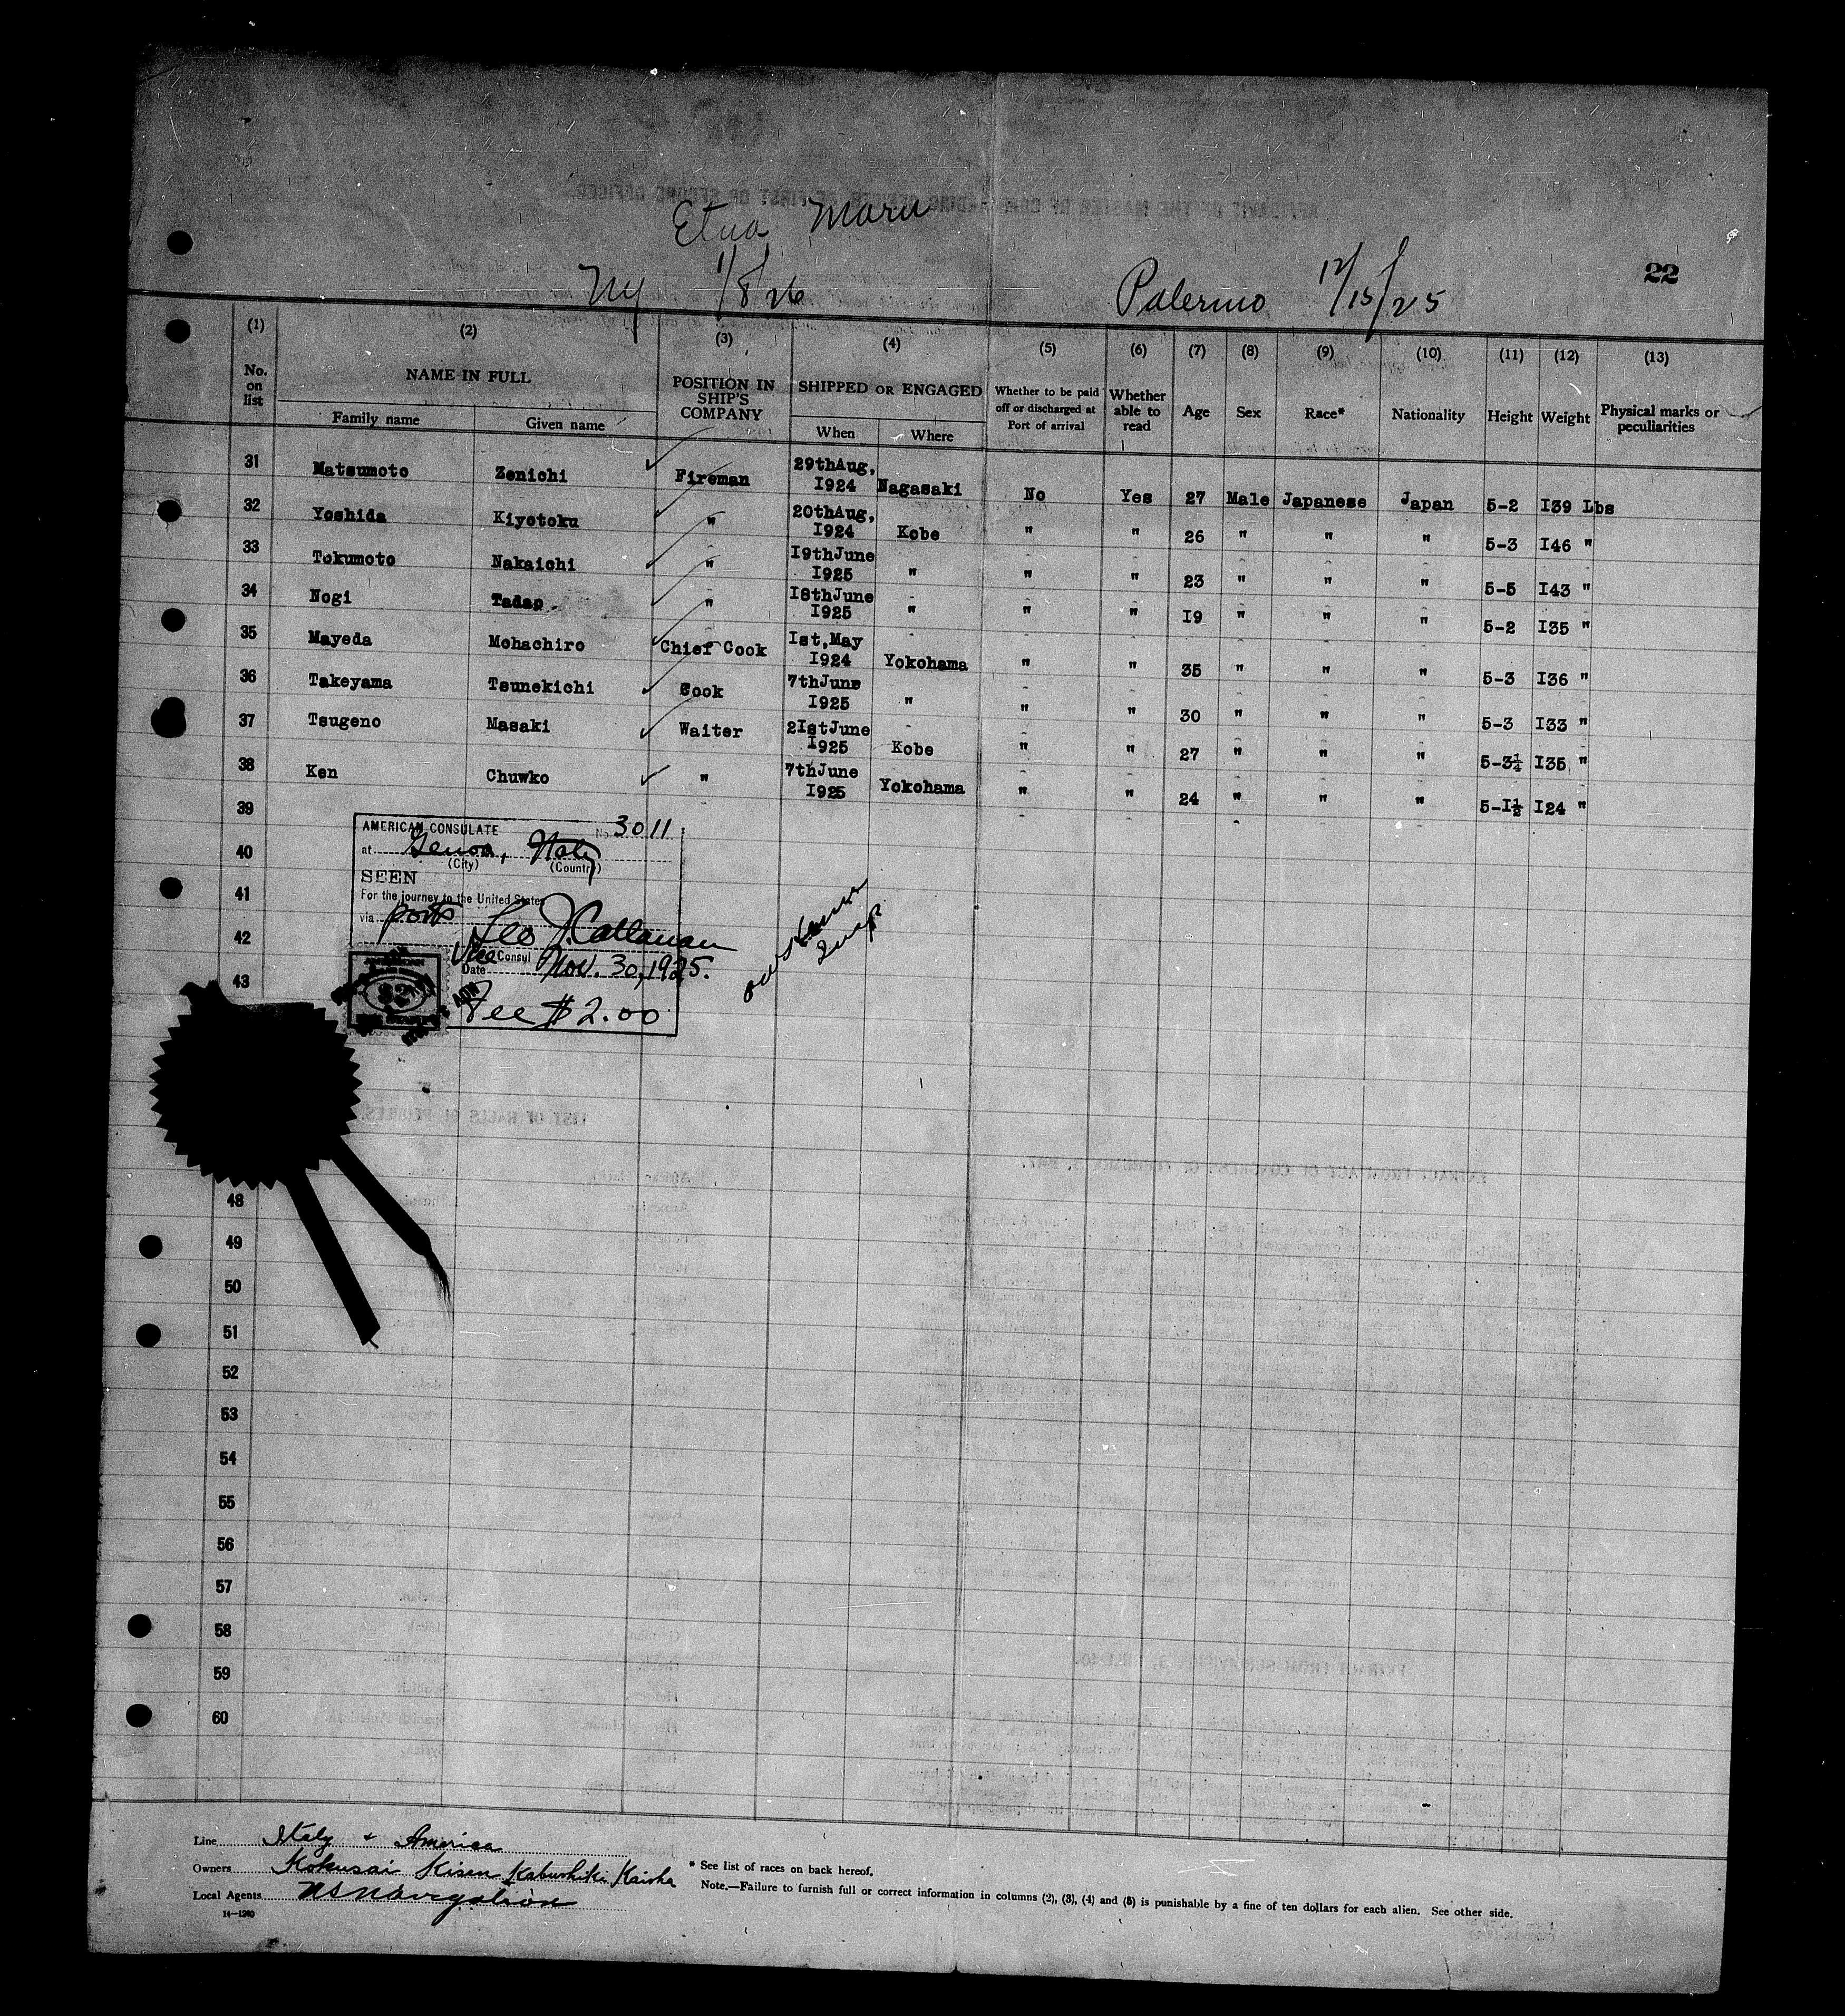 Etna Maru
NY 1/8/26 Palermo 12/15/25 22
(1) (2) (3) (4) (5) (6) (7) (8) (9) (10) (11) (12) (13)
No. on list NAME IN FULL POSITION IN SHIP'S COMPANY SHIPPED OR ENGAGED Whether to be paid off or discharged at Port of arrival Whether able to read Age Sex Race* Nationality Height Weight Physical marks or peculiarities
Family name Given name When Where
31 Matsumoto Zenichi Fireman 29thAug, I924 Nagasaki No Yes 27 Male Japanese Japan 5-2 I39 Lbs
32 Yoshida Kiyotoku " 20thAug, I924 Kobe " " 26 " " " 5-3 I46 "
33 Tokumoto Nakaichi " I9thJune I925 " " " 23 " " " 5-5 I43 "
34 Nogi Tadao " I8thJune I925 " " " I9 " " " 5-2 I35 "
35 Mayeda Mohachiro Chief Cook Ist,May I924 Yokohama " " 35 " " " 5-3 I36 "
36 Takeyama Tsunekichi Cook 7thJune I925 " " " 30 " " " 5-3 I33 "
37 Tsugeno Masaki Waiter 2IstJune I925 Kobe " " 27 " " " 5-3¼ I35 "
38 Ken Chuwko " 7thJune I925 Yokohama " " 24 " " " 5-I½ I24 "
39
AMERICAN CONSULATE No 3011
at Genoa, Italy
(City) (Country)
SEEN
For the journey to the United States
via ports
Leo J. Callanan
Vice Consul
Date Nov. 30, 1925.
Fee $2.00
40
41
42
43
48
49
50
51
52
53
54
55
56
57
58
59
60
Line Italy & America
Owners Kokusai Kisen Kabushiki Kaisha
Local Agents US Navigation
14—1240
* See list of races on back hereof.
Note.—Failure to furnish full or correct information in columns (2), (3), (4) and (5) is punishable by a fine of ten dollars for each alien. See other side.